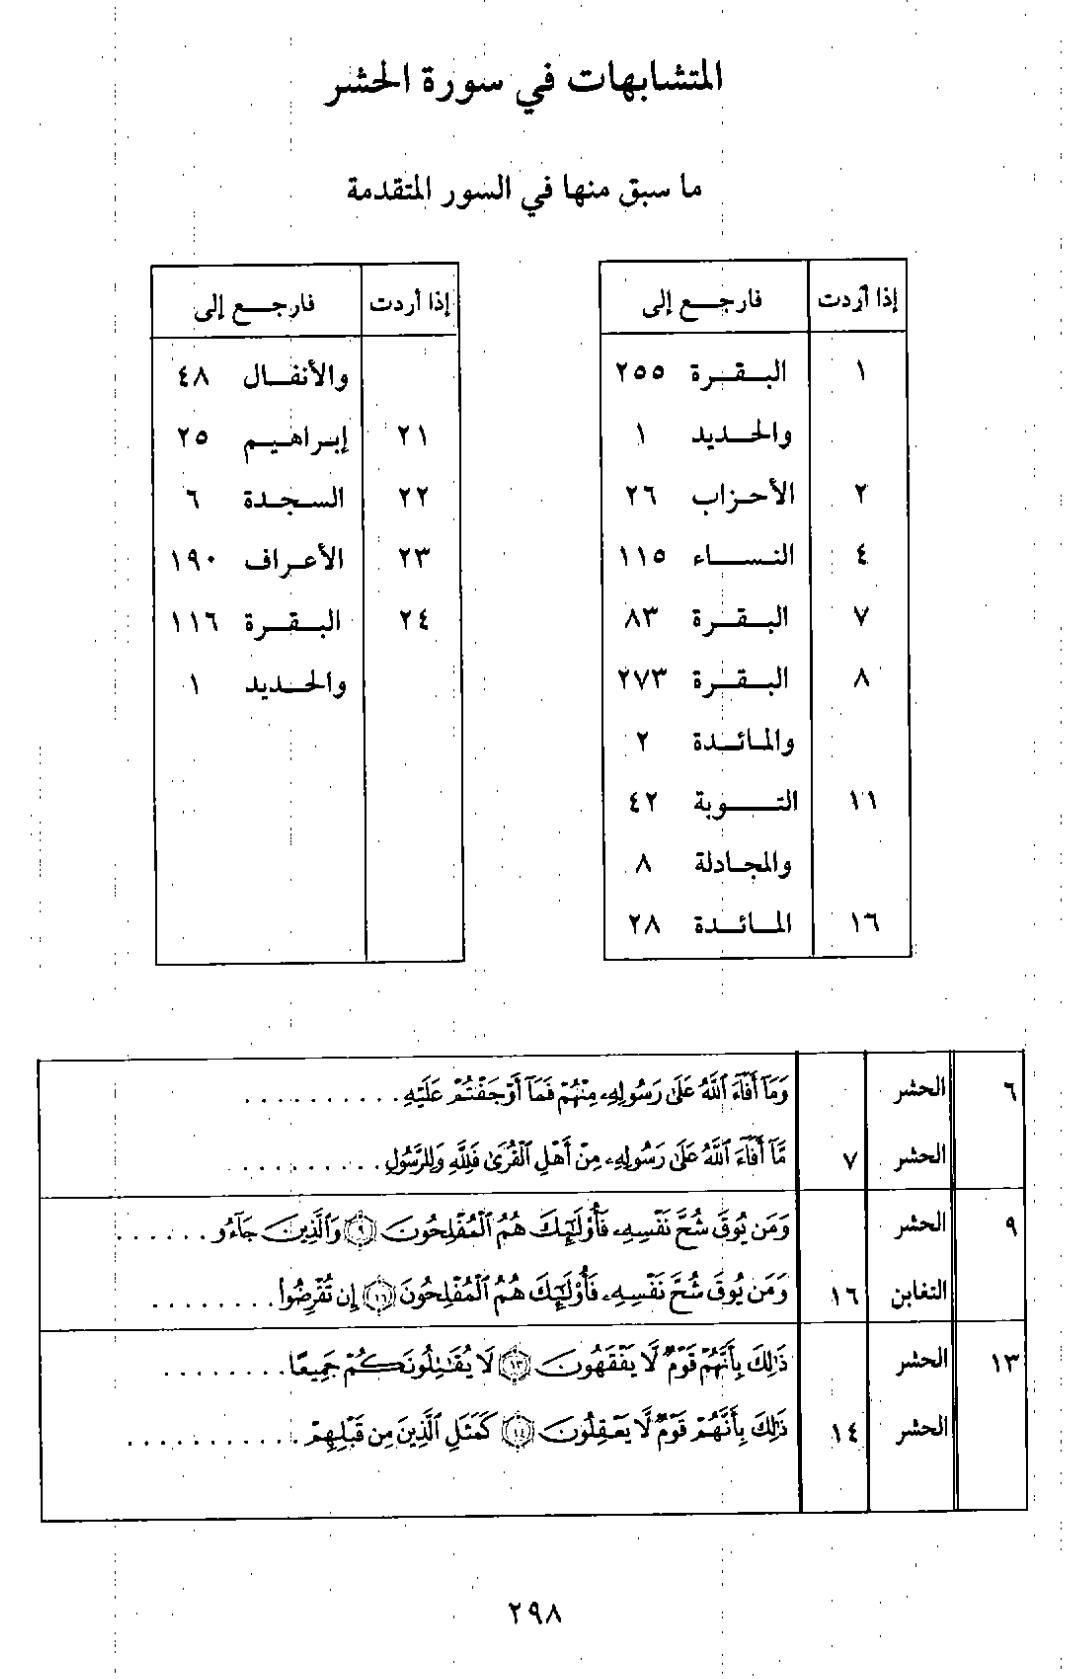 المتشابهات في سورة الحشر
ما سبق منها في السور المتقدمة
إذا أردت فارجع إلى
١ البقرة ٢٥٥
والحديد ١
٢ الأحزاب ٢٦
٤ النساء ١١٥
٧ البقرة ٨٣
٨ البقرة ٢٧٣
والمائدة ٢
١١ التوبة ٤٢
والمجادلة ٨
١٦ المائدة ٢٨
إذا أردت فارجع إلى
والأنفال ٤٨
٢١ إبراهيم ٢٥
٢٢ السجدة ٦
٢٣ الأعراف ١٩٠
٢٤ البقرة ١١٦
والحديد ١
٦ الحشر وَمَآ أَفَآءَ ٱللَّهُ عَلَىٰ رَسُولِهِۦ مِنْهُمْ فَمَآ أَوْجَفْتُمْ عَلَيْهِ ..........
الحشر ٧ مَّآ أَفَآءَ ٱللَّهُ عَلَىٰ رَسُولِهِۦ مِنْ أَهْلِ ٱلْقُرَىٰ فَلِلَّهِ وَلِلرَّسُولِ ..........
٩ الحشر وَمَن يُوقَ شُحَّ نَفْسِهِۦ فَأُو۟لَٰٓئِكَ هُمُ ٱلْمُفْلِحُونَ ٩ وَٱلَّذِينَ جَآءُو ......
التغابن ١٦ وَمَن يُوقَ شُحَّ نَفْسِهِۦ فَأُو۟لَٰٓئِكَ هُمُ ٱلْمُفْلِحُونَ ١٦ إِن تُقْرِضُوا۟ ........
١٣ الحشر ذَٰلِكَ بِأَنَّهُمْ قَوْمٌ لَّا يَفْقَهُونَ ١٣ لَا يُقَٰتِلُونَكُمْ جَمِيعًا ........
الحشر ١٤ ذَٰلِكَ بِأَنَّهُمْ قَوْمٌ لَّا يَعْقِلُونَ ١٤ كَمَثَلِ ٱلَّذِينَ مِن قَبْلِهِمْ ...........
٢٩٨